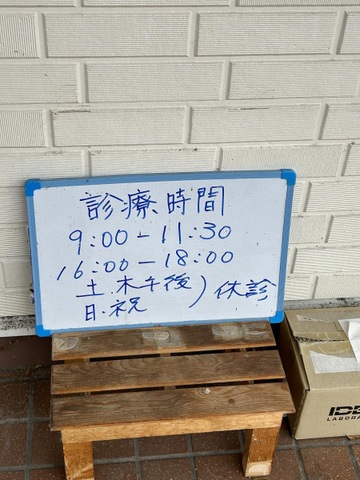 診療時間
9:00-11:30
16:00-18:00
土.木午後
日.祝
)休診
LABORA